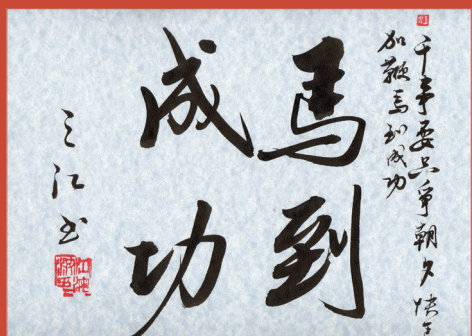 干事要只争朝夕 快马
加鞭马到成功
馬到
成功
江书